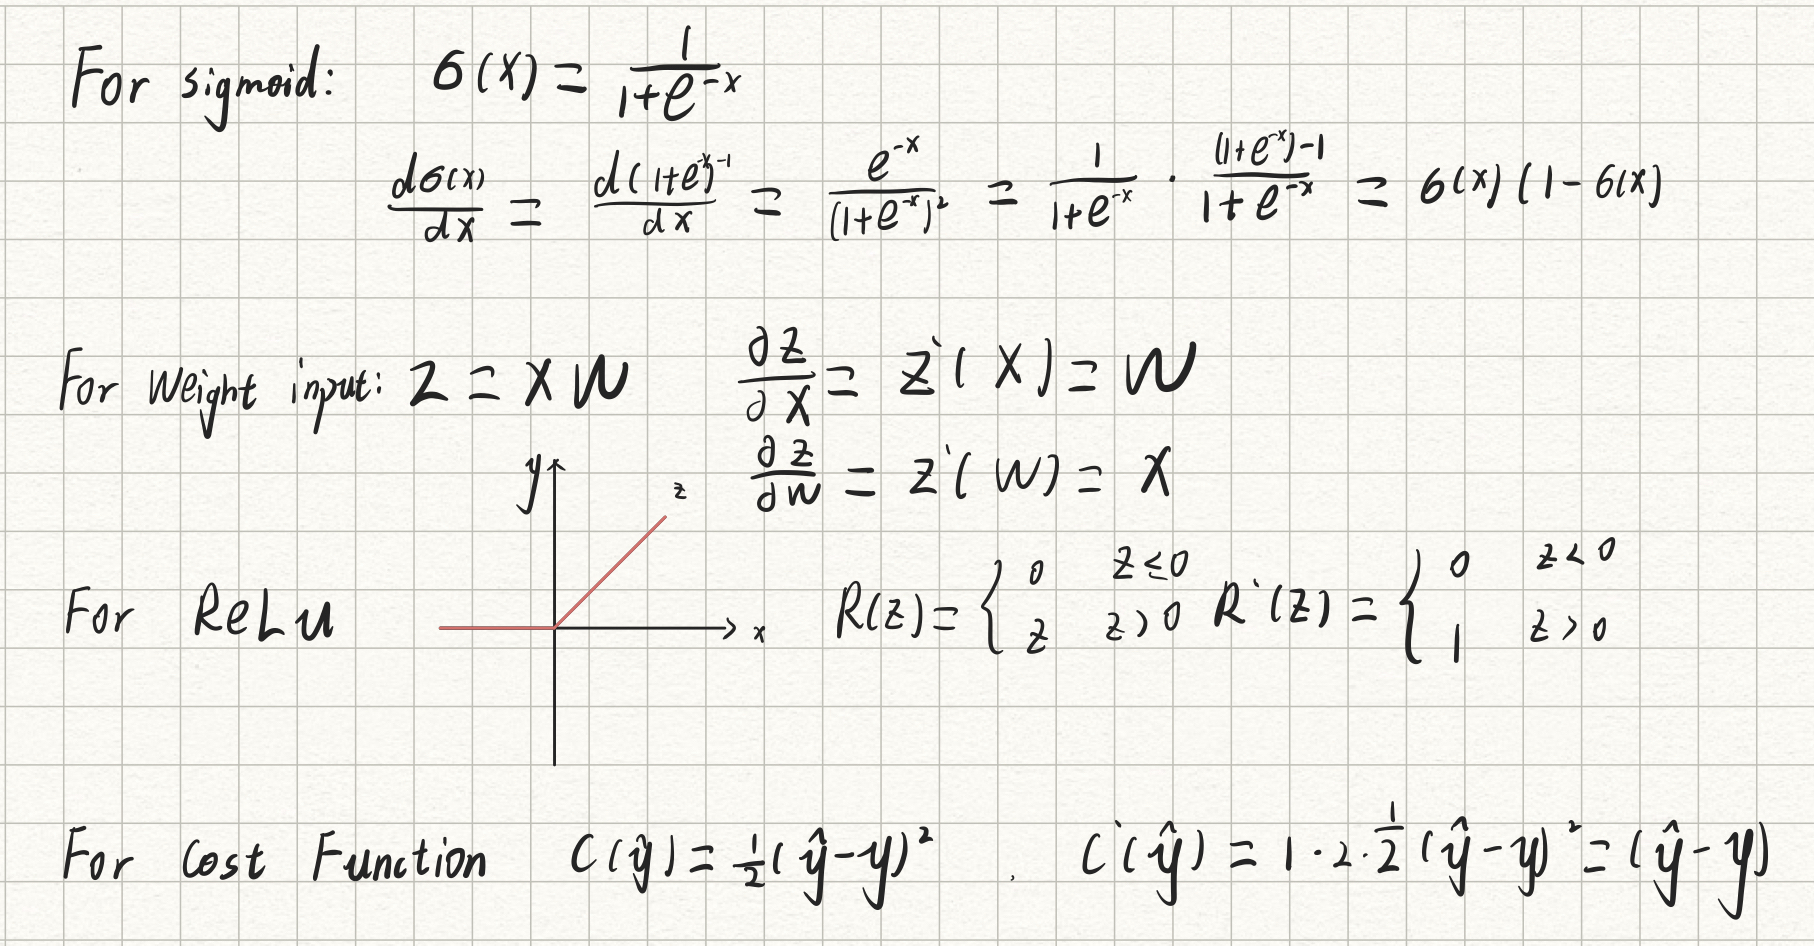 For sigmoid: σ(x) = 1/(1+e^-x)
dσ(x)/dx = d(1+e^-x)^-1/dx = e^-x/(1+e^-x)^2 = 1/(1+e^-x) · ((1+e^-x)-1)/(1+e^-x) = σ(x)(1-σ(x)
For Weight input: Z = XW ∂Z/∂X = Z'(X) = W
∂Z/∂W = Z'(W) = X
y z
x
For ReLu R(z) = { 0 z≤0 R'(z) = { 0 z<0
z z>0 1 z>0
For Cost Function C(ŷ) = 1/2(ŷ-y)^2 , C'(ŷ) = 1·2·1/2(ŷ-y)^2 = (ŷ-y)